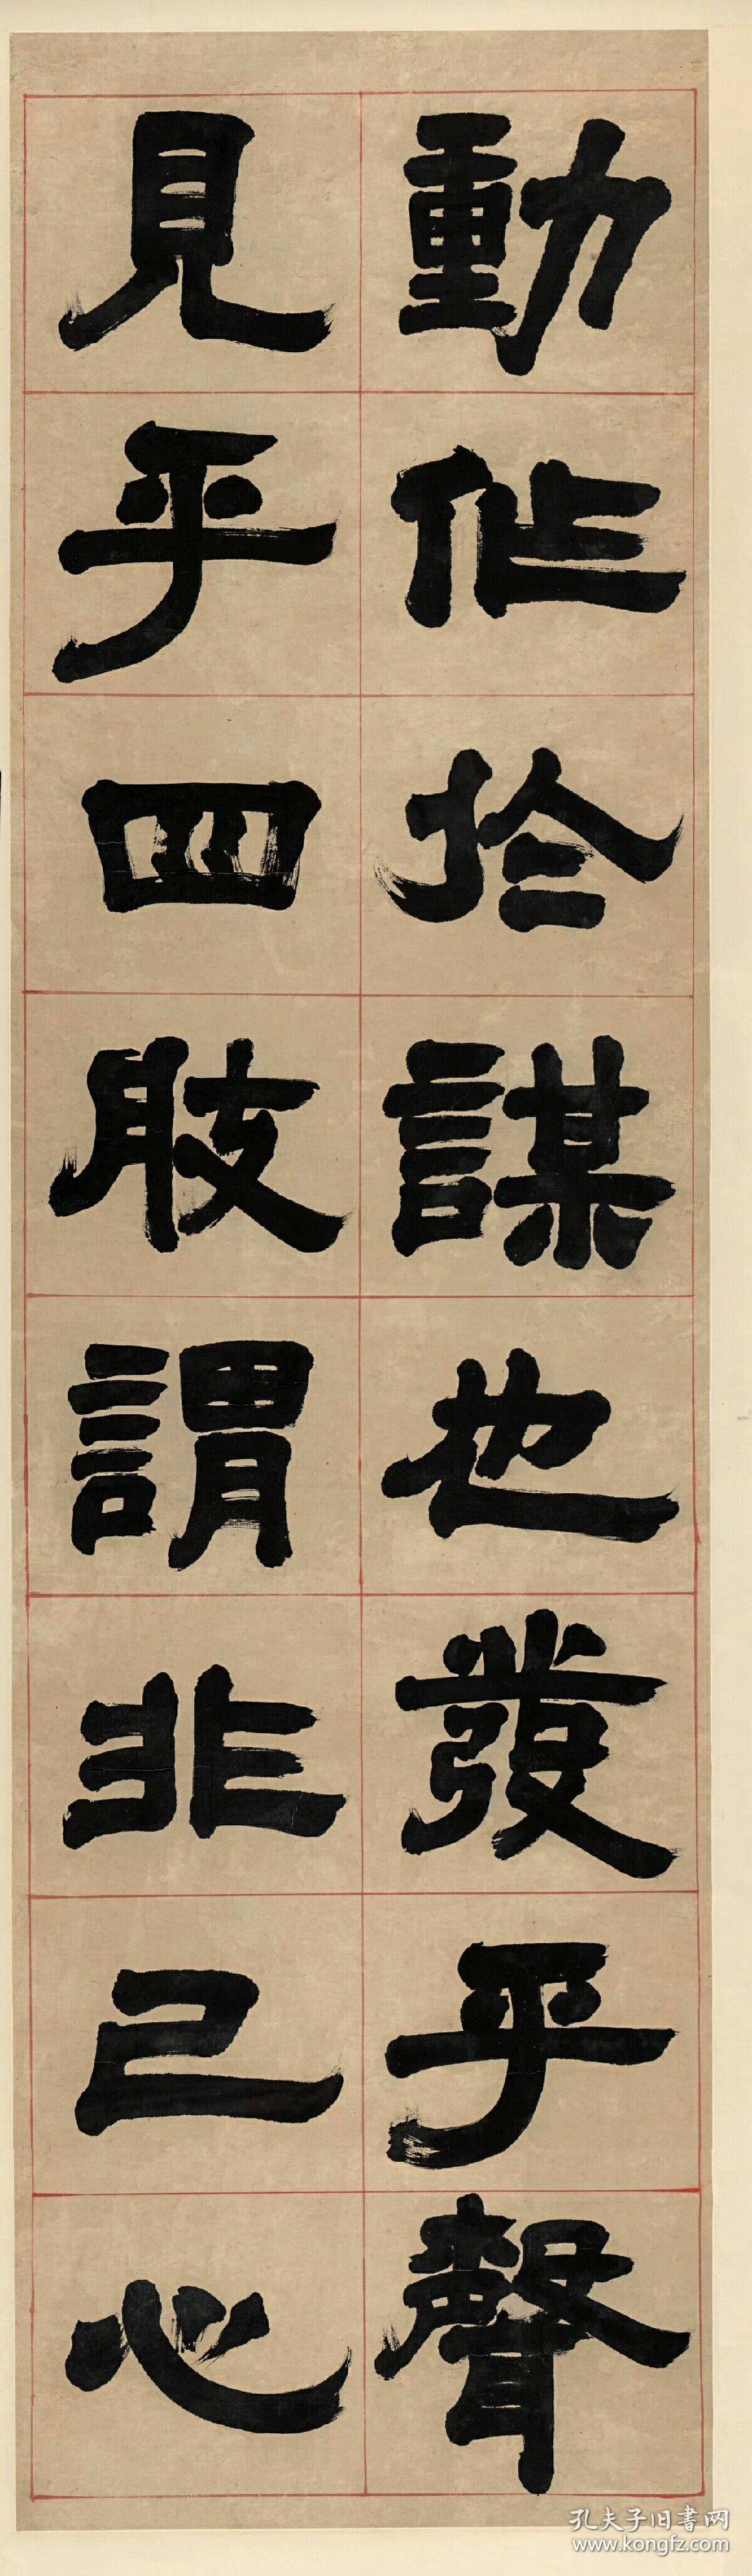 動作於謀也發乎聲
見乎四肢謂非己心
孔夫子旧書网
www.kongfz.com